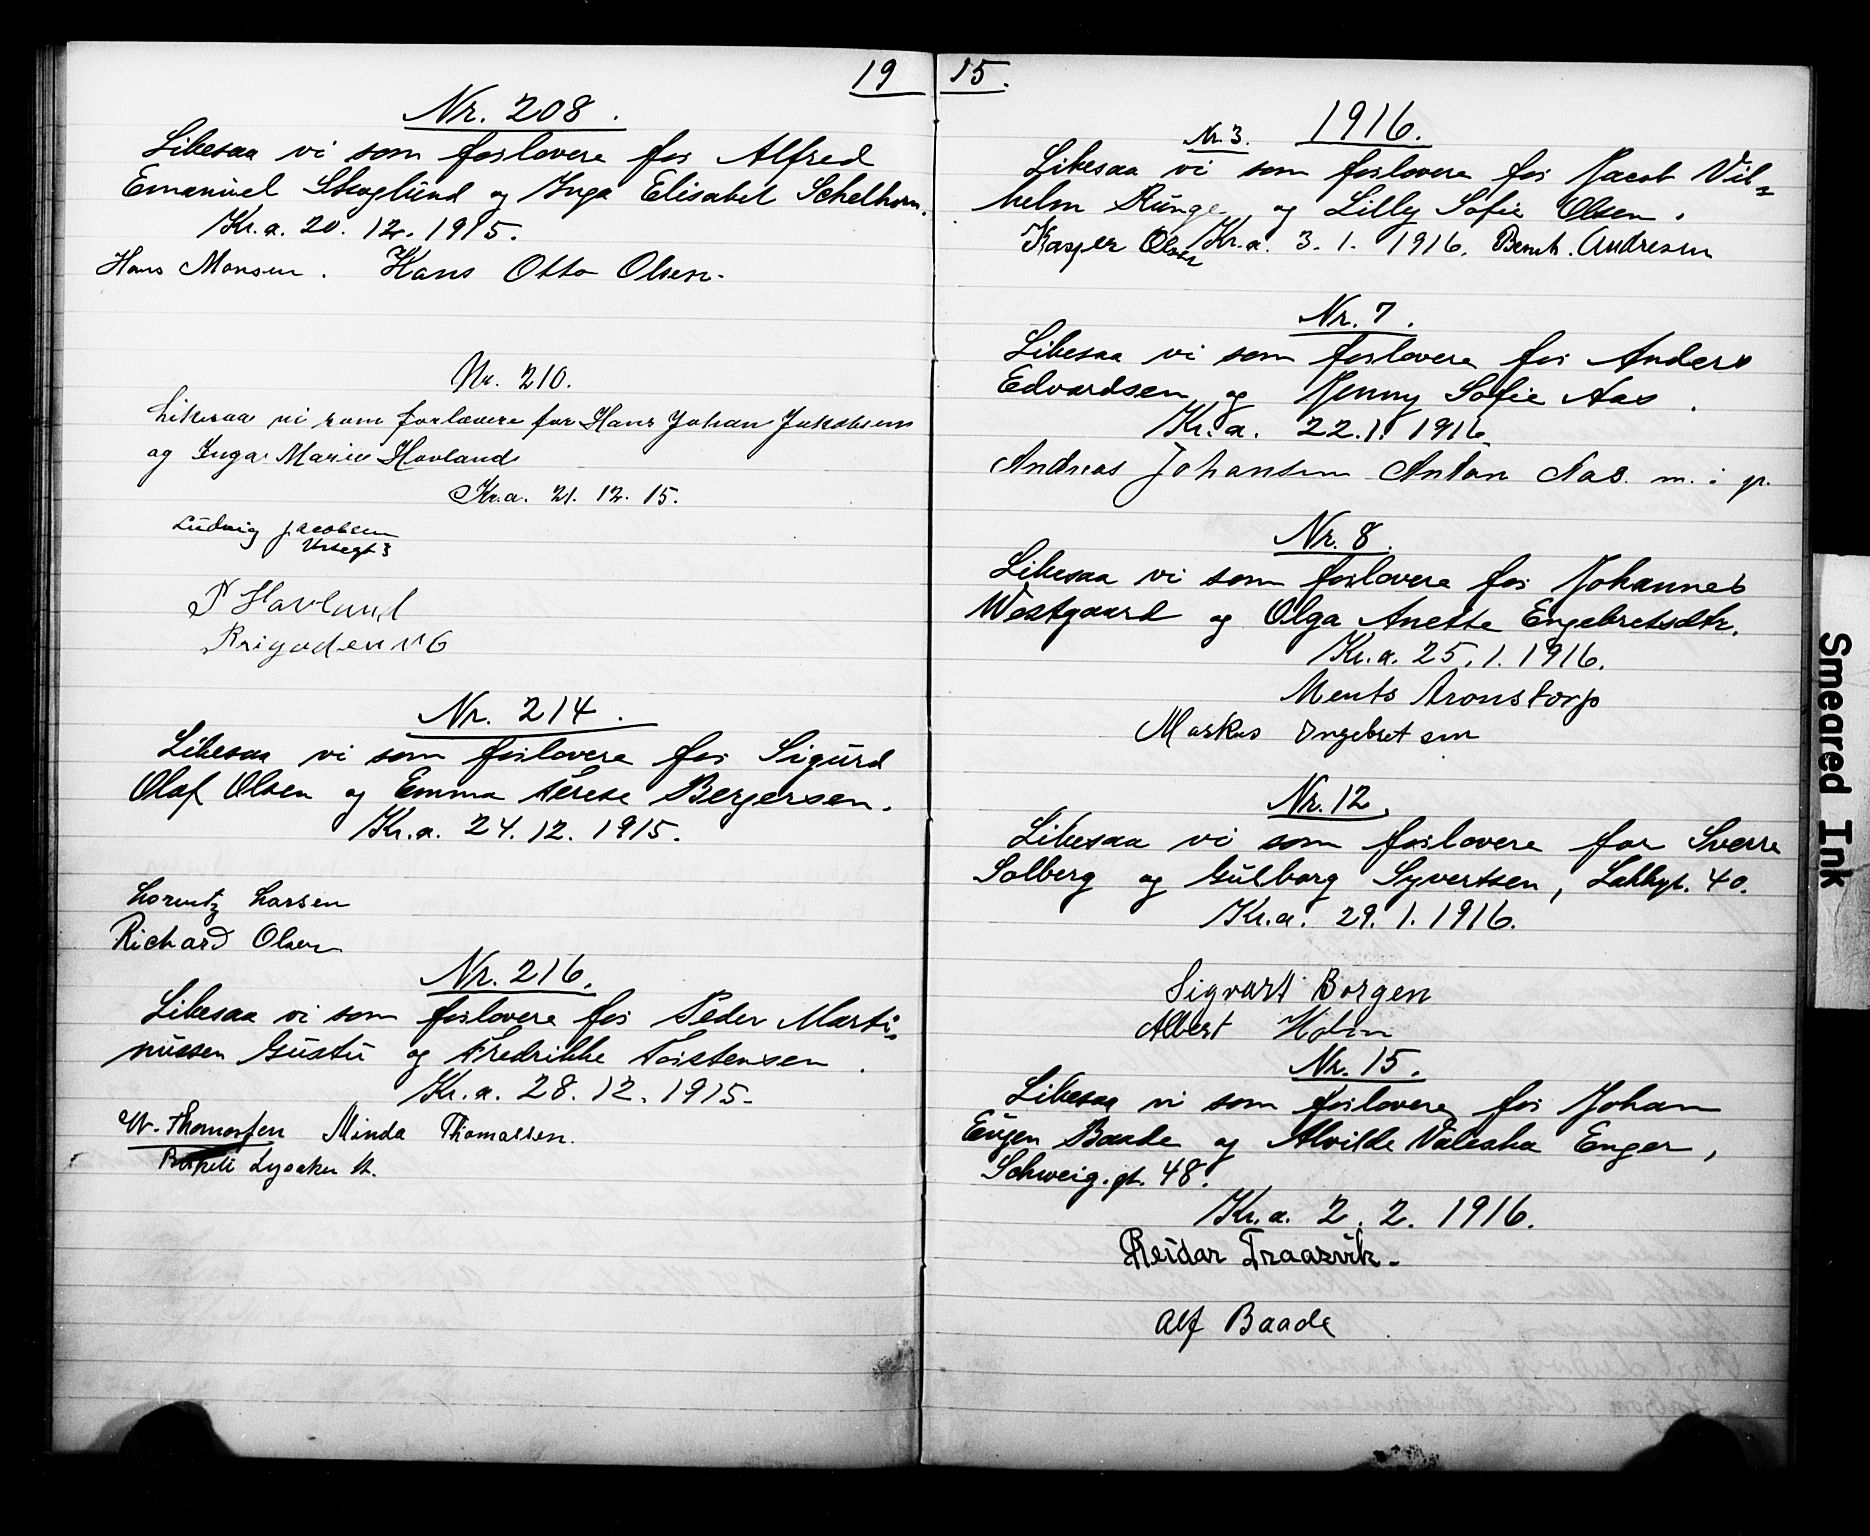 19 15.
Nr. 208.
Likesaa vi som forlovere for Alfred
Emanuel Skoglund og Inga Elisabet Schelhorn.
Kr.a. 20. 12. 1915.
Hans Monsen. Hans Otto Olsen.
Nr. 210.
Likesaa vi som forlovere for Hans Johan Jakobsen
og Inga Marie Hovland
Kr.a. 21. 12. 15.
Ludvig Jacobsen
P Havland
Brigaden N 6
Nr. 214.
Likesaa vi som forlovere for Sigurd
Olaf Olsen og Emma Terese Bergersen.
Kr.a. 24. 12. 1915.
Lorentz Larsen
Richard Olsen
Nr. 216.
Likesaa vi som forlovere for Peder Marti-
nussen Gustu og Fredrikke Torstensen.
Kr.a. 28. 12. 1915.
W. Thomassen Minda Thomassen.
Lysaker st.
1916.
Nr. 3.
Likesaa vi som forlovere for Jacob Vil=
helm Runge og Lilly Sofie Olsen.
Kasper Olsen Kr.a. 3. 1. 1916. Bernh. Andresen
Nr. 7.
Likesaa vi som forlovere for Anders
Edvardsen og Jenny Sofie Aas.
Kr.a. 22. 1. 1916
Andreas Johansen Anton Aas. m. i p.
Nr. 8.
Likesaa vi som forlovere for Johannes
Westgaard og Olga Anette Engebretsdtr.
Kr.a. 25. 1. 1916.
Ments Aronstorp
Markus Ingebretsen
Nr. 12.
Likesaa vi som forlovere for Sverre
Solberg og Gulborg Syvertsen, Lakkgt. 40.
Kr.a. 29. 1. 1916.
Sigvart Borgen
Albert Holm
Nr. 15.
Likesaa vi som forlovere for Johan
Eugen Baade og Alvilde Valeska Enger,
Schweig.gt. 48.
Kr.a. 2. 2. 1916.
Reidar Traasvik.
Alf Baade
Smeared Ink